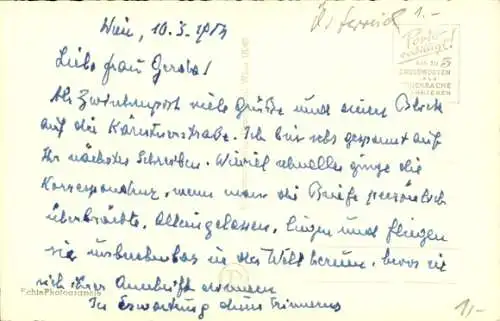 Wien, 10.3.1953
Österreich
1.-
Porto
ermässigt!
bis zu 5
GRUSSWORTEN
ALS
DRUCKSACHE
Liebe Frau Gerda!
Als Zwischenpost viele Grüße und einen Blick
auf die Kärntnerstraße. Ich bin sehr gespannt auf
Ihr nächstes Schreiben. Wieviel schneller ginge die
Korrespondenz, wenn man die Briefe persönlich
überbrächte. Alleingelassen, liegen und fliegen
sie unberechenbar in der Welt herum, bevor sie
sich ihrer Anschrift erinnern
In Erwartung
Echte Photographie
1,-